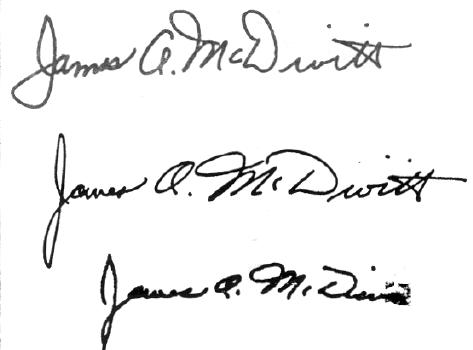 James A. McDivitt
James A. McDivitt
James A. McDiv